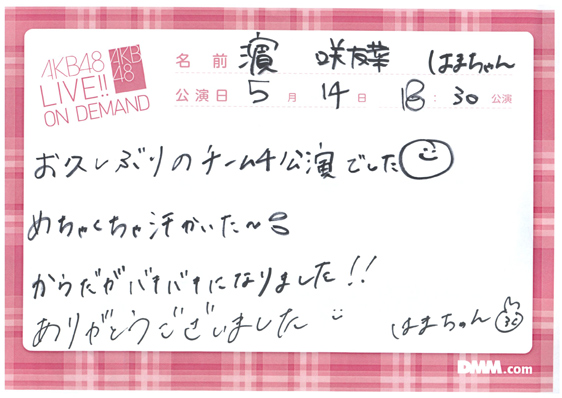 AKB48
LIVE!!
ON DEMAND
AKB
48
名前 濵 咲友菜 はまちゃん
公演日 5月 14日 18:30 公演
お久しぶりのチーム4公演でした
めちゃくちゃ汗かいた〜
からだがバキバキになりました!!
ありがとうございました
はまちゃん
DMM.com